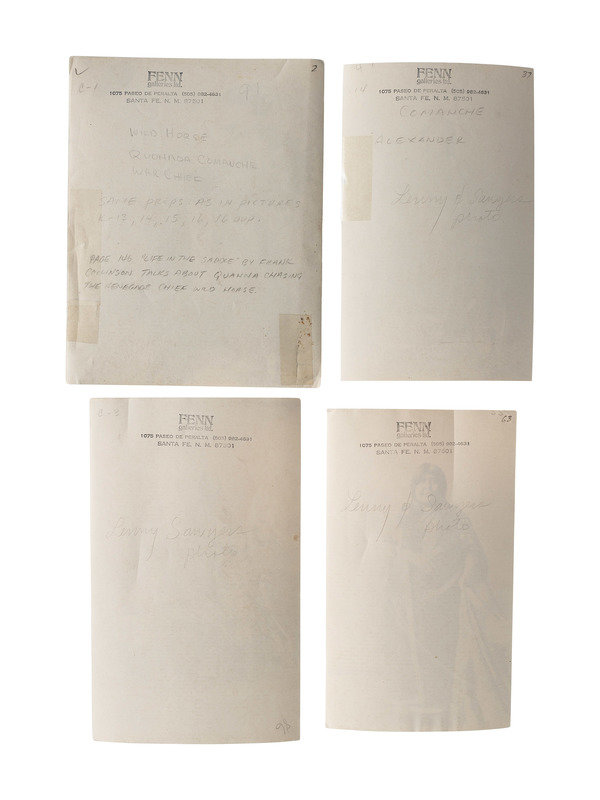 2
C-1
FENN
galleries ltd.
1075 PASEO DE PERALTA (505) 982-4631
SANTA FE, N. M. 87501
WILD HORSE
QUOHADA COMANCHE
WAR CHIEF
SAME PROPS AS IN PICTURES
K-13, 14, 15, 16, 16 DUP.
PAGE 146 "LIFE IN THE SADDLE" BY FRANK
COLLINSON TALKS ABOUT QUANNA CHASING
THE RENEGADE CHIEF WILD HORSE.
37
FENN
galleries ltd.
1075 PASEO DE PERALTA (505) 982-4631
SANTA FE, N. M. 87501
COMANCHE
ALEXANDER
Lenny & Sawyers
photo
FENN
galleries ltd.
1075 PASEO DE PERALTA (505) 982-4631
SANTA FE, N. M. 87501
Lenny Sawyers
photo
63
FENN
galleries ltd.
1075 PASEO DE PERALTA (505) 982-4631
SANTA FE, N. M. 87501
Lenny & Sawyers
photo